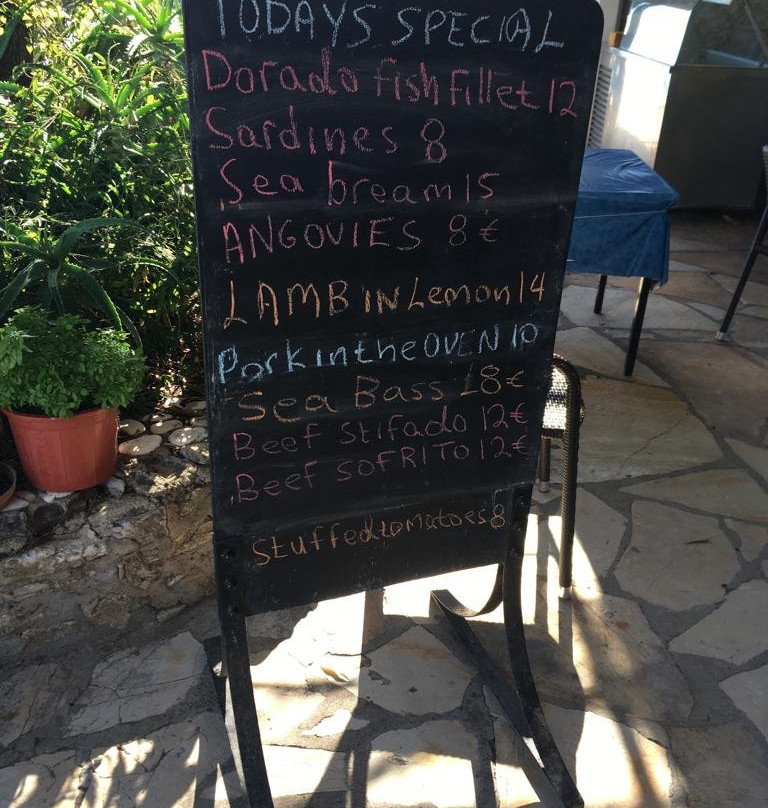 TODAYS SPECIAL
Dorado fish fillet 12
Sardines 8
Sea bream 15
ANGOVIES 8 €
LAMB IN Lemon 14
Pork in the OVEN 10
Sea Bass 18€
Beef Stifado 12€
Beef SOFRITO 12€
Stuffed tomatoes 8